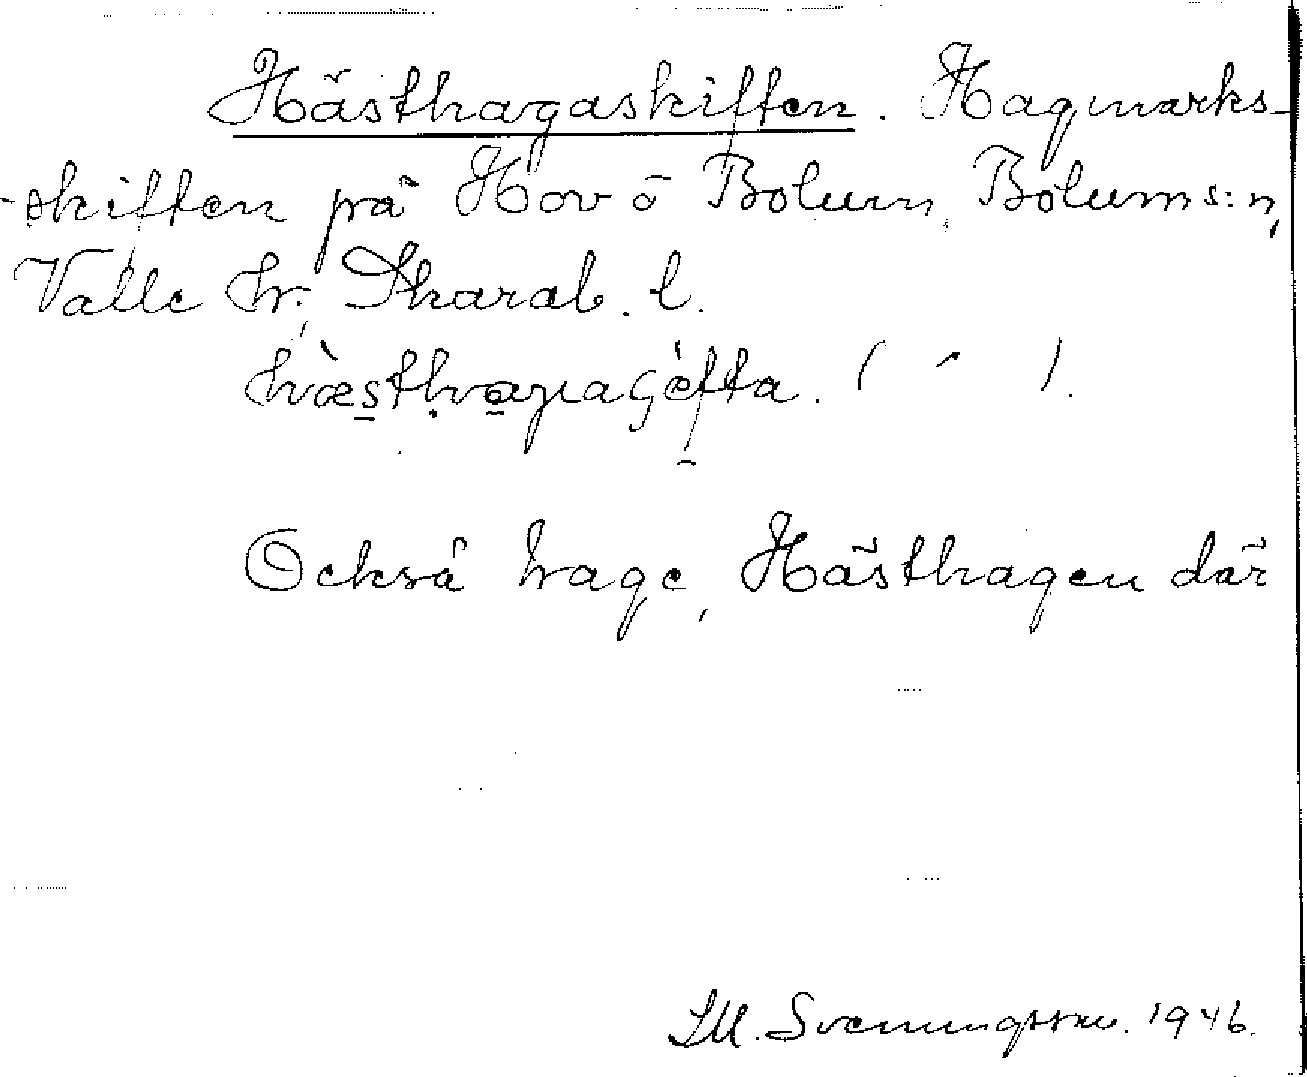 Hästhagaskiften. Hagmarks-
-skiften på Hov o Bolum, Bolums:n,
Valle hr, Skarab. l.
Också hage, Hästhagen där
M. Svenungsson. 1946.